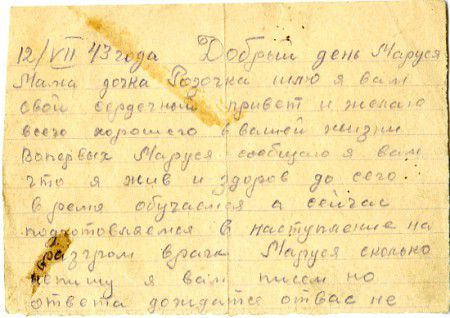 12/VII 43 года Добрый день Маруся
Мама дочка Розочка шлю я вам
свой сердечный привет и желаю
всего хорошего в вашей жизни
Вопервых Маруся сообщаю я вам
что я жив и здоров до сего
время обучаемся а сейчас
подготовляемся в наступление на
разгром врага Маруся сколько
непишу я вам писем но
ответа дождатся отвас не